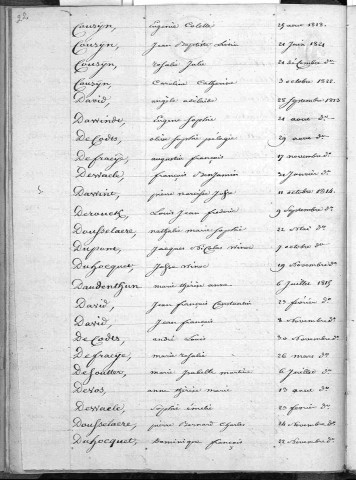 Cousyn, Eugénie Colette 25 aout 1818.
Cousyn, Jean Baptiste 21 Juin 1821
Cousyn, Rosalie Julie 21 décembre do
Cousyn, Caroline Catherine 3 octobre 1822.
David, angèle adélaïde 28 Septembre 1813
Dawinde, Eugène Josephe 21 aout do
De Codts, Sophie pélagie 29 aout do
Defraeye, augustin françois 17 novembre do
Dewaele, françois Benjamin 31 Janvier do
Dawint, pierre 11 octobre 1814.
Derouck, Louis Jean 9 Septembre do
Dousselaere, nathalie marie Sophie 22 do
Dupont, Jacques Nicolas 7 octobre do
Duhocquet, 19 Novembre do
Daudenthun marie thérèse anne 6 Juillet 1815
David, Jean françois Constantin 23 février do
David, Jean françois 8 Novembre do
De Codts, andré Louis 30 Novembre do
Defraeye, marie rosalie 26 mars do
Desoutter, marie Isabelle martine 6 Juillet do
Devos, anne thérèse marie 13 aout do
Dewaele, Sophie amélie 23 février do
Dousselaere, pierre Bernard Charles 26 Novembre do
Duhocquet, Dominique françois 22 Novembre do